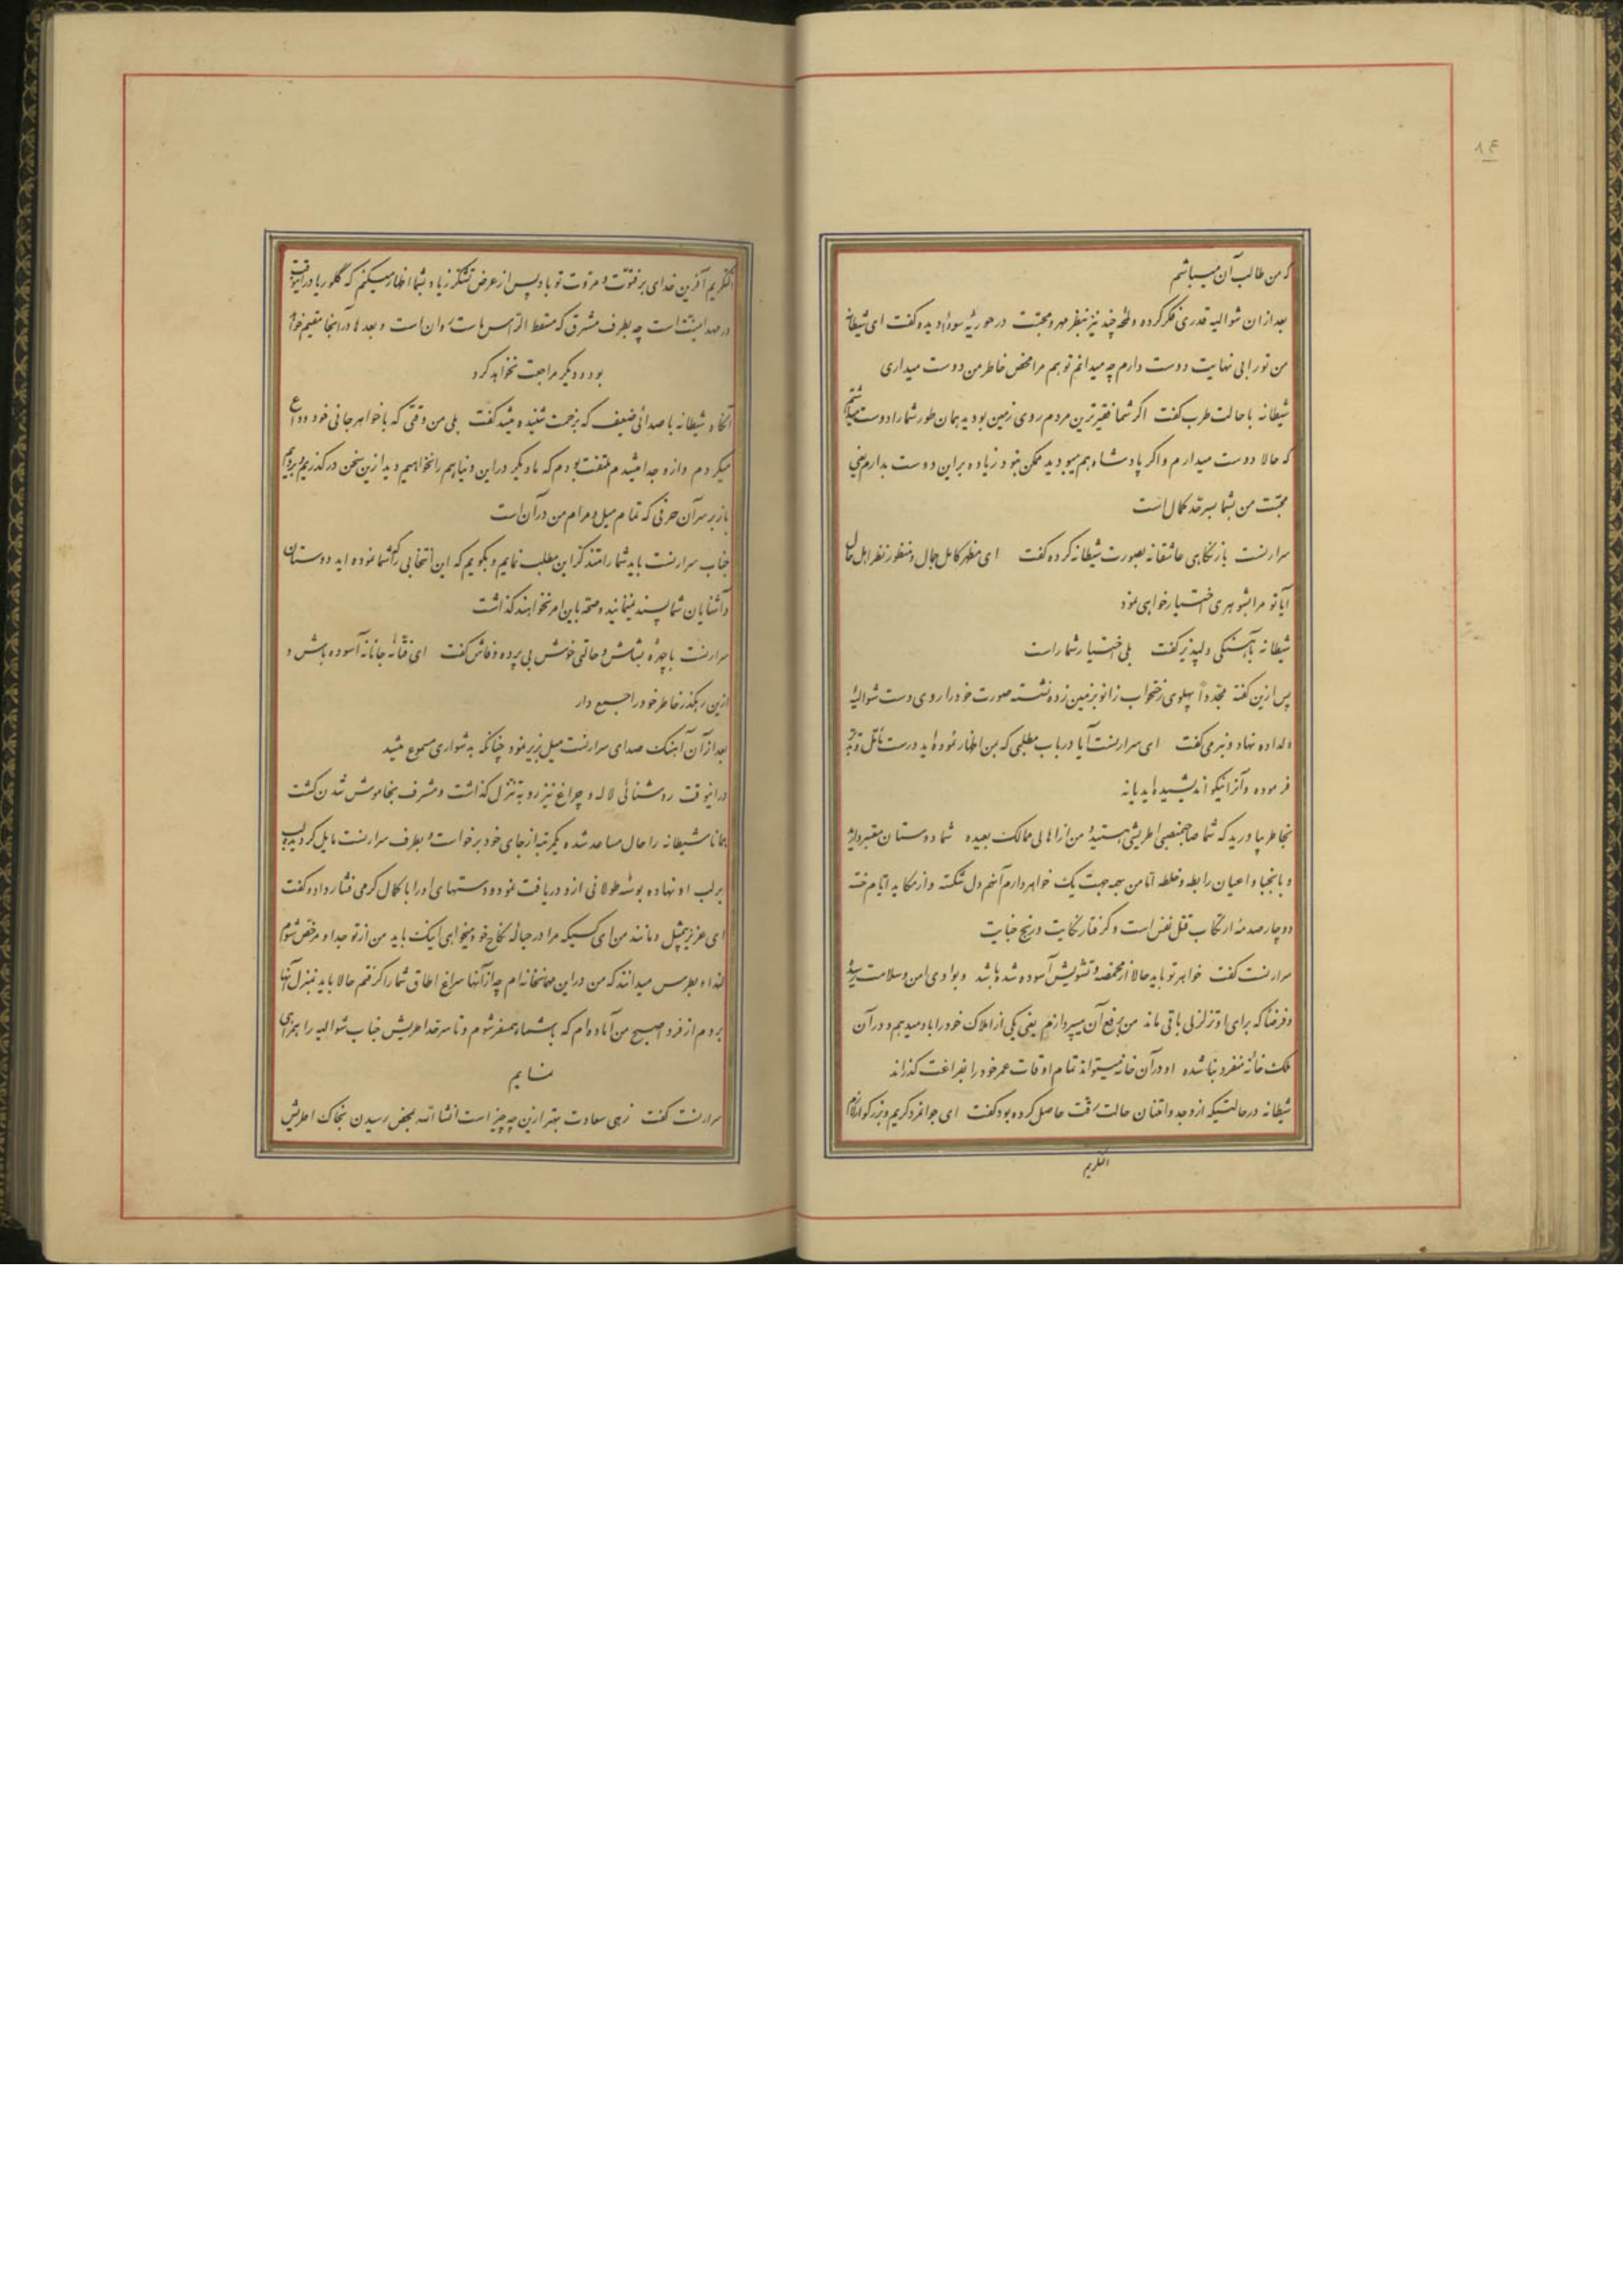 ۸۴
که من طالب آن میباشم
بعد از ان شوالیه قدری فکر کرده و لمحهٔ چند نیز بنظر مهر و محبت در حوریهٔ سودا دیده گفت ای شیطانه
من تو را بی نهایت دوست دارم چه میدانم تو هم مرا محض خاطر من دوست میداری
شیطانه با حالت طرب گفت اگر شما فقیرترین مردم روی زمین بودید همان طور شما را دوست میداشتم
که حالا دوست میدارم و اگر پادشاه هم میبودید ممکن نبود زیاده بر این دوست بدارم یعنی
محبت من بشما بسرحد کمال است
سرارنست باز نگاهی عاشقانه بصورت شیطانه کرده گفت ای مظهر کامل جمال و منظور نظر اهل حال
آیا تو مرا بشوهری اختیار خواهی نمود
شیطانه بآهستگی دلپذیر گفت بلی اختیار شما راست
پس ازین گفته مجدداً پهلوی رختخواب زانو بزمین زده نشسته صورت خود را روی دست شوالیهٔ
دلداده نهاد و بنرمی گفت ای سرارنست آیا در باب مطلبی که بمن اظهار نموده اید درست تأمل و تدبر
فرموده و آنرا نیکو اندیشیده اید یا نه
بخاطر بیاورید که شما صاحبمنصبی اطریشی هستید و من از اهالی ممالک بعیده شما دوستان معتبر دارید
و با نجبا و اعیان رابطه و خلطه اما من بهمه جهت یک خواهر دارم آنهم دل شکسته و از مکاید ایام خسته
دوچار صدمهٔ ارتکاب قتل نفس است و گرفتار نکایت و رنج خیانت
سرارنست گفت خواهر تو باید حالا از مخمصه و تشویش آسوده شده باشد و بوادی امن و سلامت رسیده
و فرضاً که برای او تزلزلی باقی ماند من برفع آن میپردازم یعنی یکی از املاک خود را باو میدهم و در آن
ملک خانهٔ منفرد بنا شده او در آن خانه میتواند تمام اوقات عمر خود را بفراغت گذراند
شیطانه در حالتیکه از وجد و امتنان حالت رقت حاصل کرده بود گفت ای جوانمرد کریم و بزرگوار
الکریم
الکریم آفرین خدای بر فتوت و مروت تو باد پس از عرض تشکر زیاد بشما اظهار میکنم که گلوریا در اینوقت
در مهد امنیت است چه بطرف مشرق که مسقط الراس ماست روان است و بعدها در آنجا مقیم خواهد
بود و دیگر مراجعت نخواهد کرد
آنگاه شیطانه با صدائی ضعیف که بزحمت شنیده میشد گفت بلی من وقتی که با خواهر جانی خود وداع
میکردم و از و جدا میشدم ملتفت بودم که ما دیگر در این دنیا هم را نخواهیم دید ازین سخن در گذریم و برویم
باز بر سر آن حرفی که تمام میل و مرام من در آن است
جناب سرارنست باید شما را متذکر این مطلب نمایم و بگویم که این انتخابی را که شما نموده اید دوستان
و آشنایان شما پسند نمینمایند و صحه باین امر نخواهند گذاشت
سرارنست با چهرهٔ بشاش و حالتی خوش بی پرده و فاش گفت ای فتانهٔ جانانه آسوده باش و
ازین رهگذر خاطر خود را جمع دار
بعد از آن آهنگ صدای سرارنست میل بزیر نمود چنانکه بدشواری مسموع میشد
در اینوقت روشنائی لاله و چراغ نیز رو به تنزل گذاشت و مشرف بخاموش شدن گشت
همانا شیطانه را حال مساعد شده یکمرتبه از جای خود برخاست و بطرف سرارنست مایل گردیده لب
بر لب او نهاده بوسهٔ طولانی ازو دریافت نمود و دستهای او را با کمال گرمی فشار داده گفت
ای عزیز بیمثل و مانند من ای کسیکه مرا در حبالهٔ نکاح خود میخواهی اینک باید من از تو جدا و مرخص شوم
لندا و پطرس میدانند که من در این مهمانخانه ام چه از آنها سراغ اطاق شما را گرفتم حالا باید بمنزل آنها
بروم از فردا صبح من آماده ام که با شما همسفر شوم و تا سرحد اطریش جناب شوالیه را همراهی
نمایم
سرارنست گفت زهی سعادت بهتر ازین چه چیز است انشاالله بمحض رسیدن بخاک اطریش